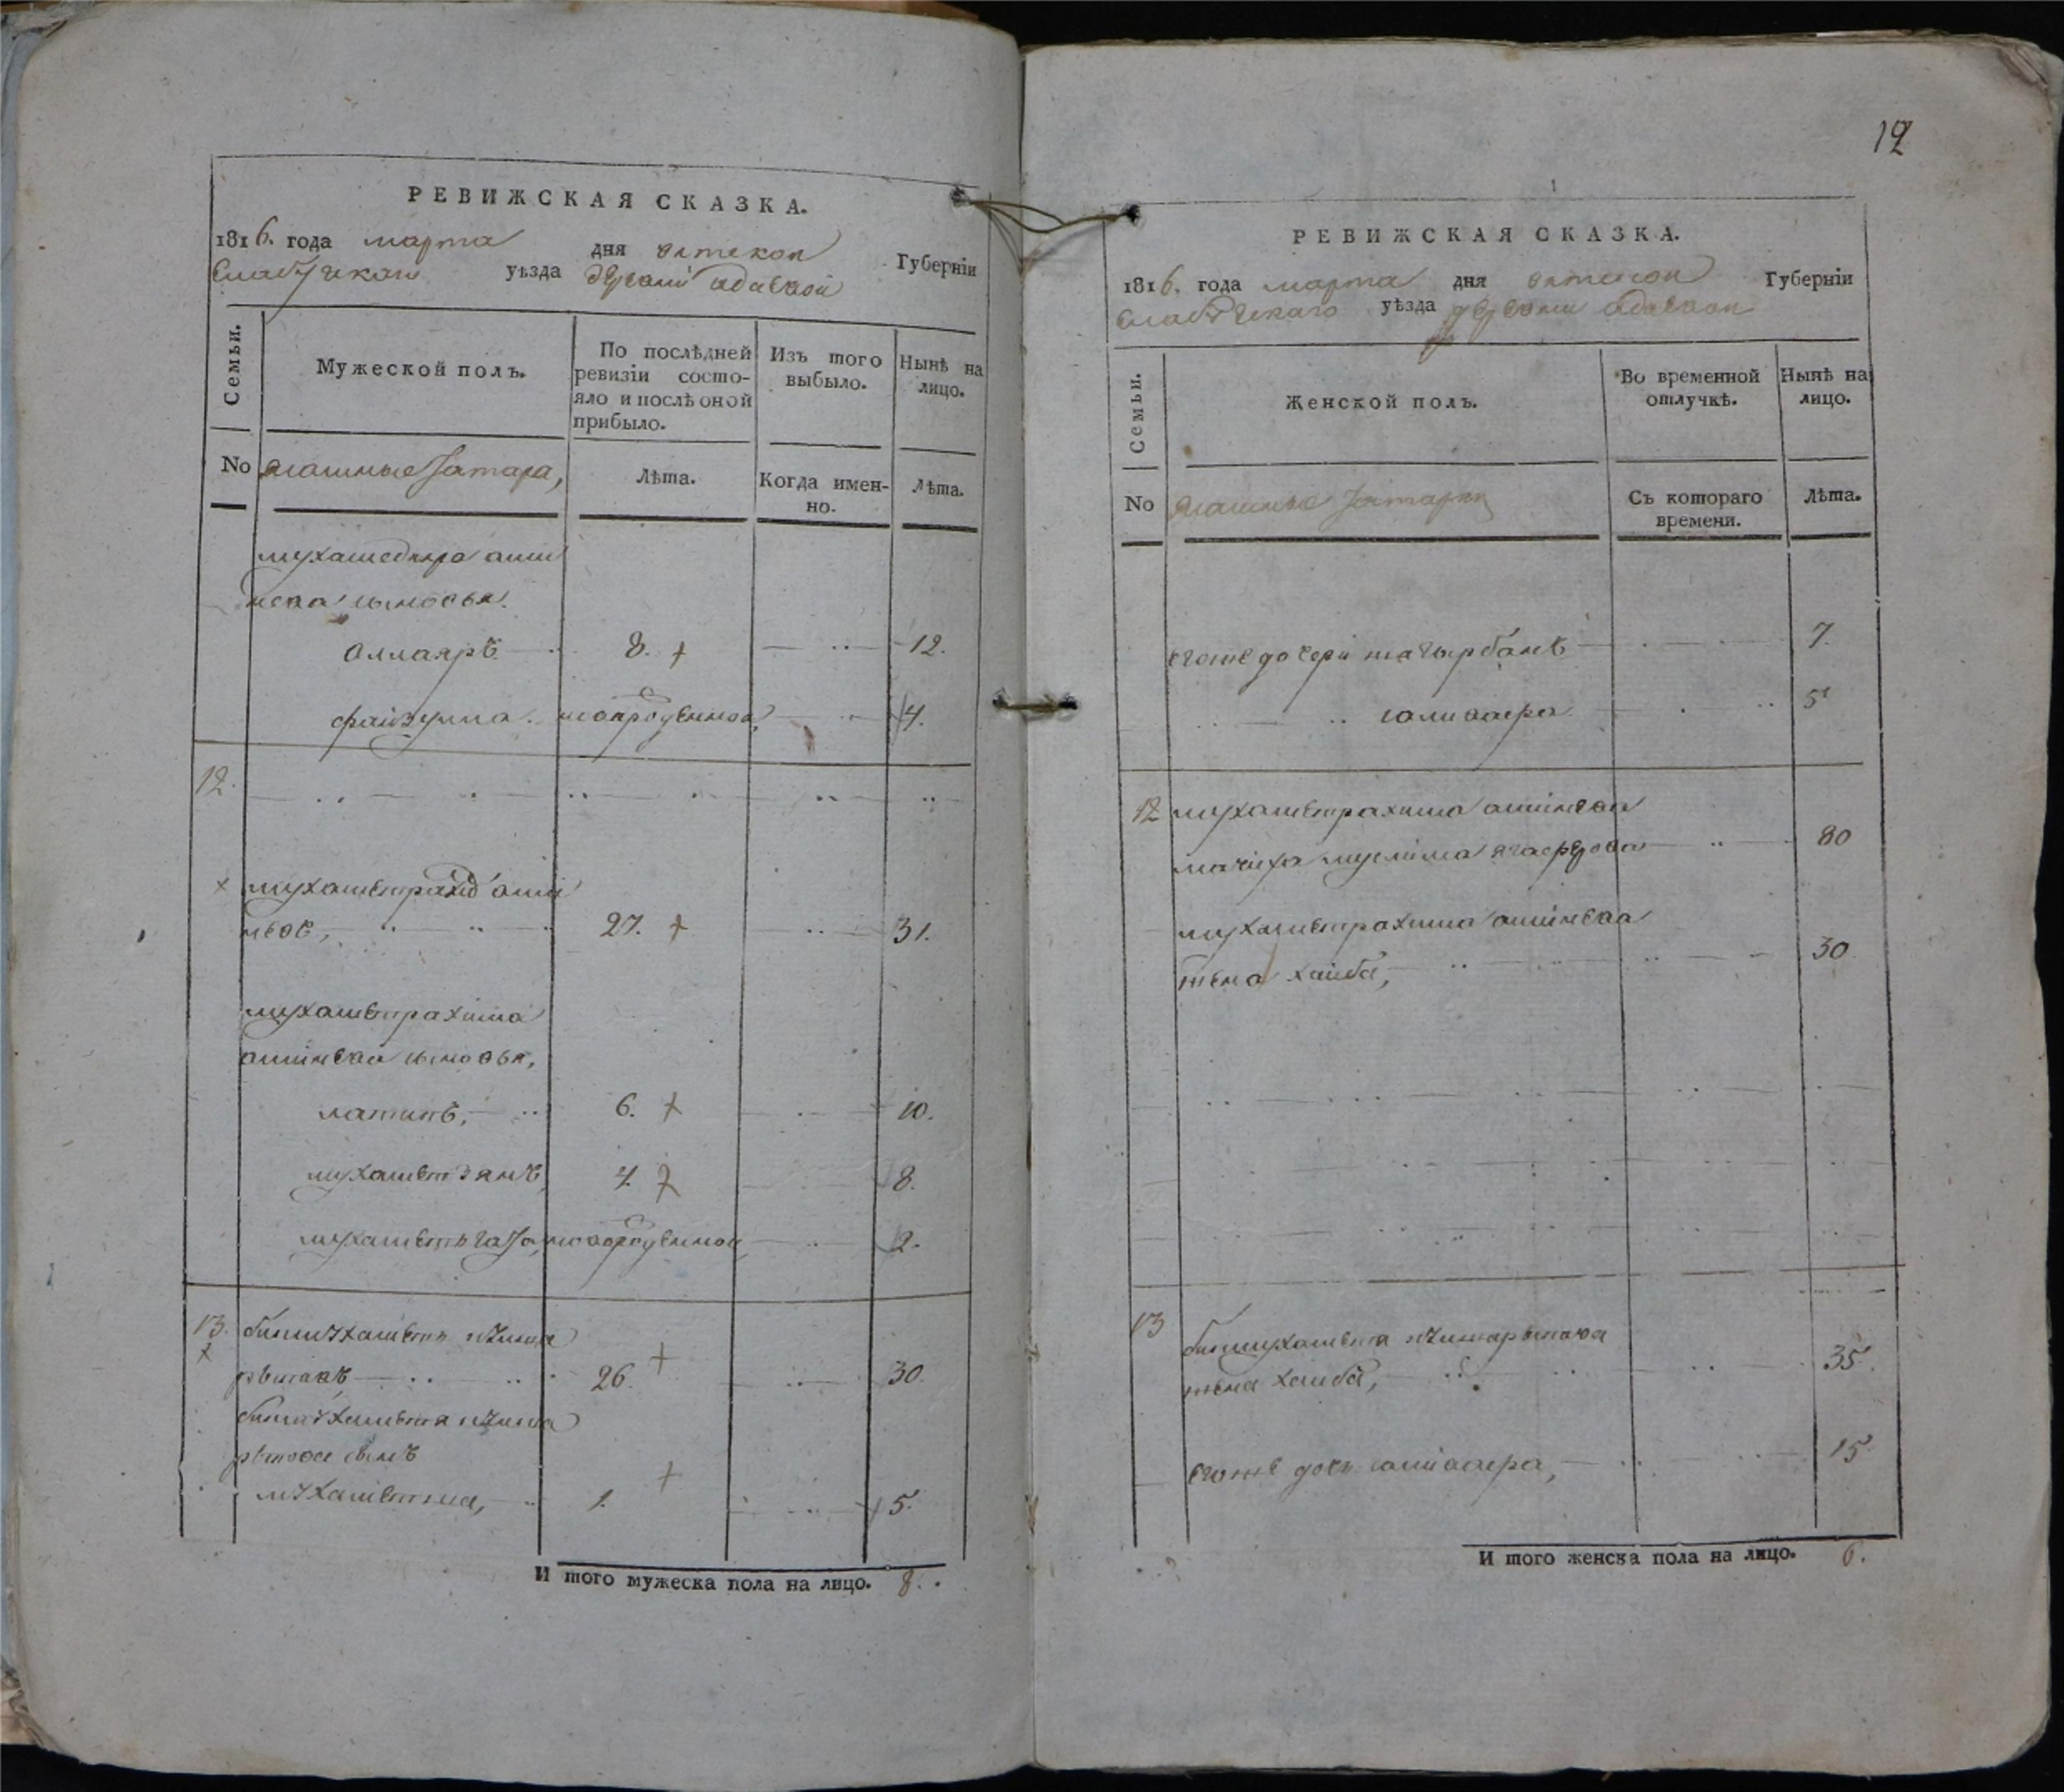 РЕВИЖСКАЯ СКАЗКА.
1816. года марта дня вятской Губерніи
Елабужскаго уѣзда деревни адаевой
Семьи.
Мужеской полъ.
По послѣдней ревизіи состояло и послѣ оной прибыло.
Изъ того выбыло.
Нынѣ на лицо.
No ясашные татара,
Лѣта.
Когда именно.
Лѣта.
мухамедияра ами
нева сыновья.
аллаяръ 8. 12.
файзулла. новорожденной 4.
12.
мухаметрахимъ ами
невъ, 27. 31.
мухаметрахима
аминева сыновья,
латипъ, 6. 10.
мухаметзянъ 4. 8.
новорожденной, 2.
13. бикмухаметъ
26. 30.
бикмухаметя
сынъ
1. 5.
И того мужеска пола на лицо. 8.
12
РЕВИЖСКАЯ СКАЗКА.
1816. года марта дня вятской Губерніи
Елабужскаго уѣзда деревни адаевой
Семьи.
Женской полъ.
Во временной отлучкѣ.
Нынѣ на лицо.
No ясашные татарки
Съ котораго времени.
Лѣта.
егоже дочери 7.
5
12 мухаметрахима аминева
мачиха муслима 80
мухаметрахима аминева
жена хаиба, 30
13 бикмухаметя
жена хаиба, 35.
егоже дочь 15
И того женска пола на лицо. 6.